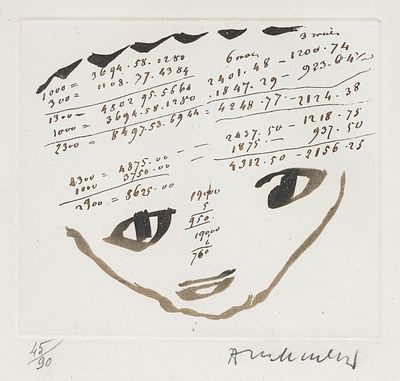 3 mois
6 mois
1000 = 3694.58.0280
2401.48 — 1200.74
300 = 1108.37.4384
.1847.29 — 923.64½
1300 = 4802.95.5664
4248.77.—2124.38
1000 = 3694.58.1280
2300 = 8497.53.6944
4300 = 4875.00 — 2437.50 — 1218.75
1000 3750.00 — 1875 — 937.50
2900 = 8625.00
4312.50 —2156.25
5
950.
760
45/90